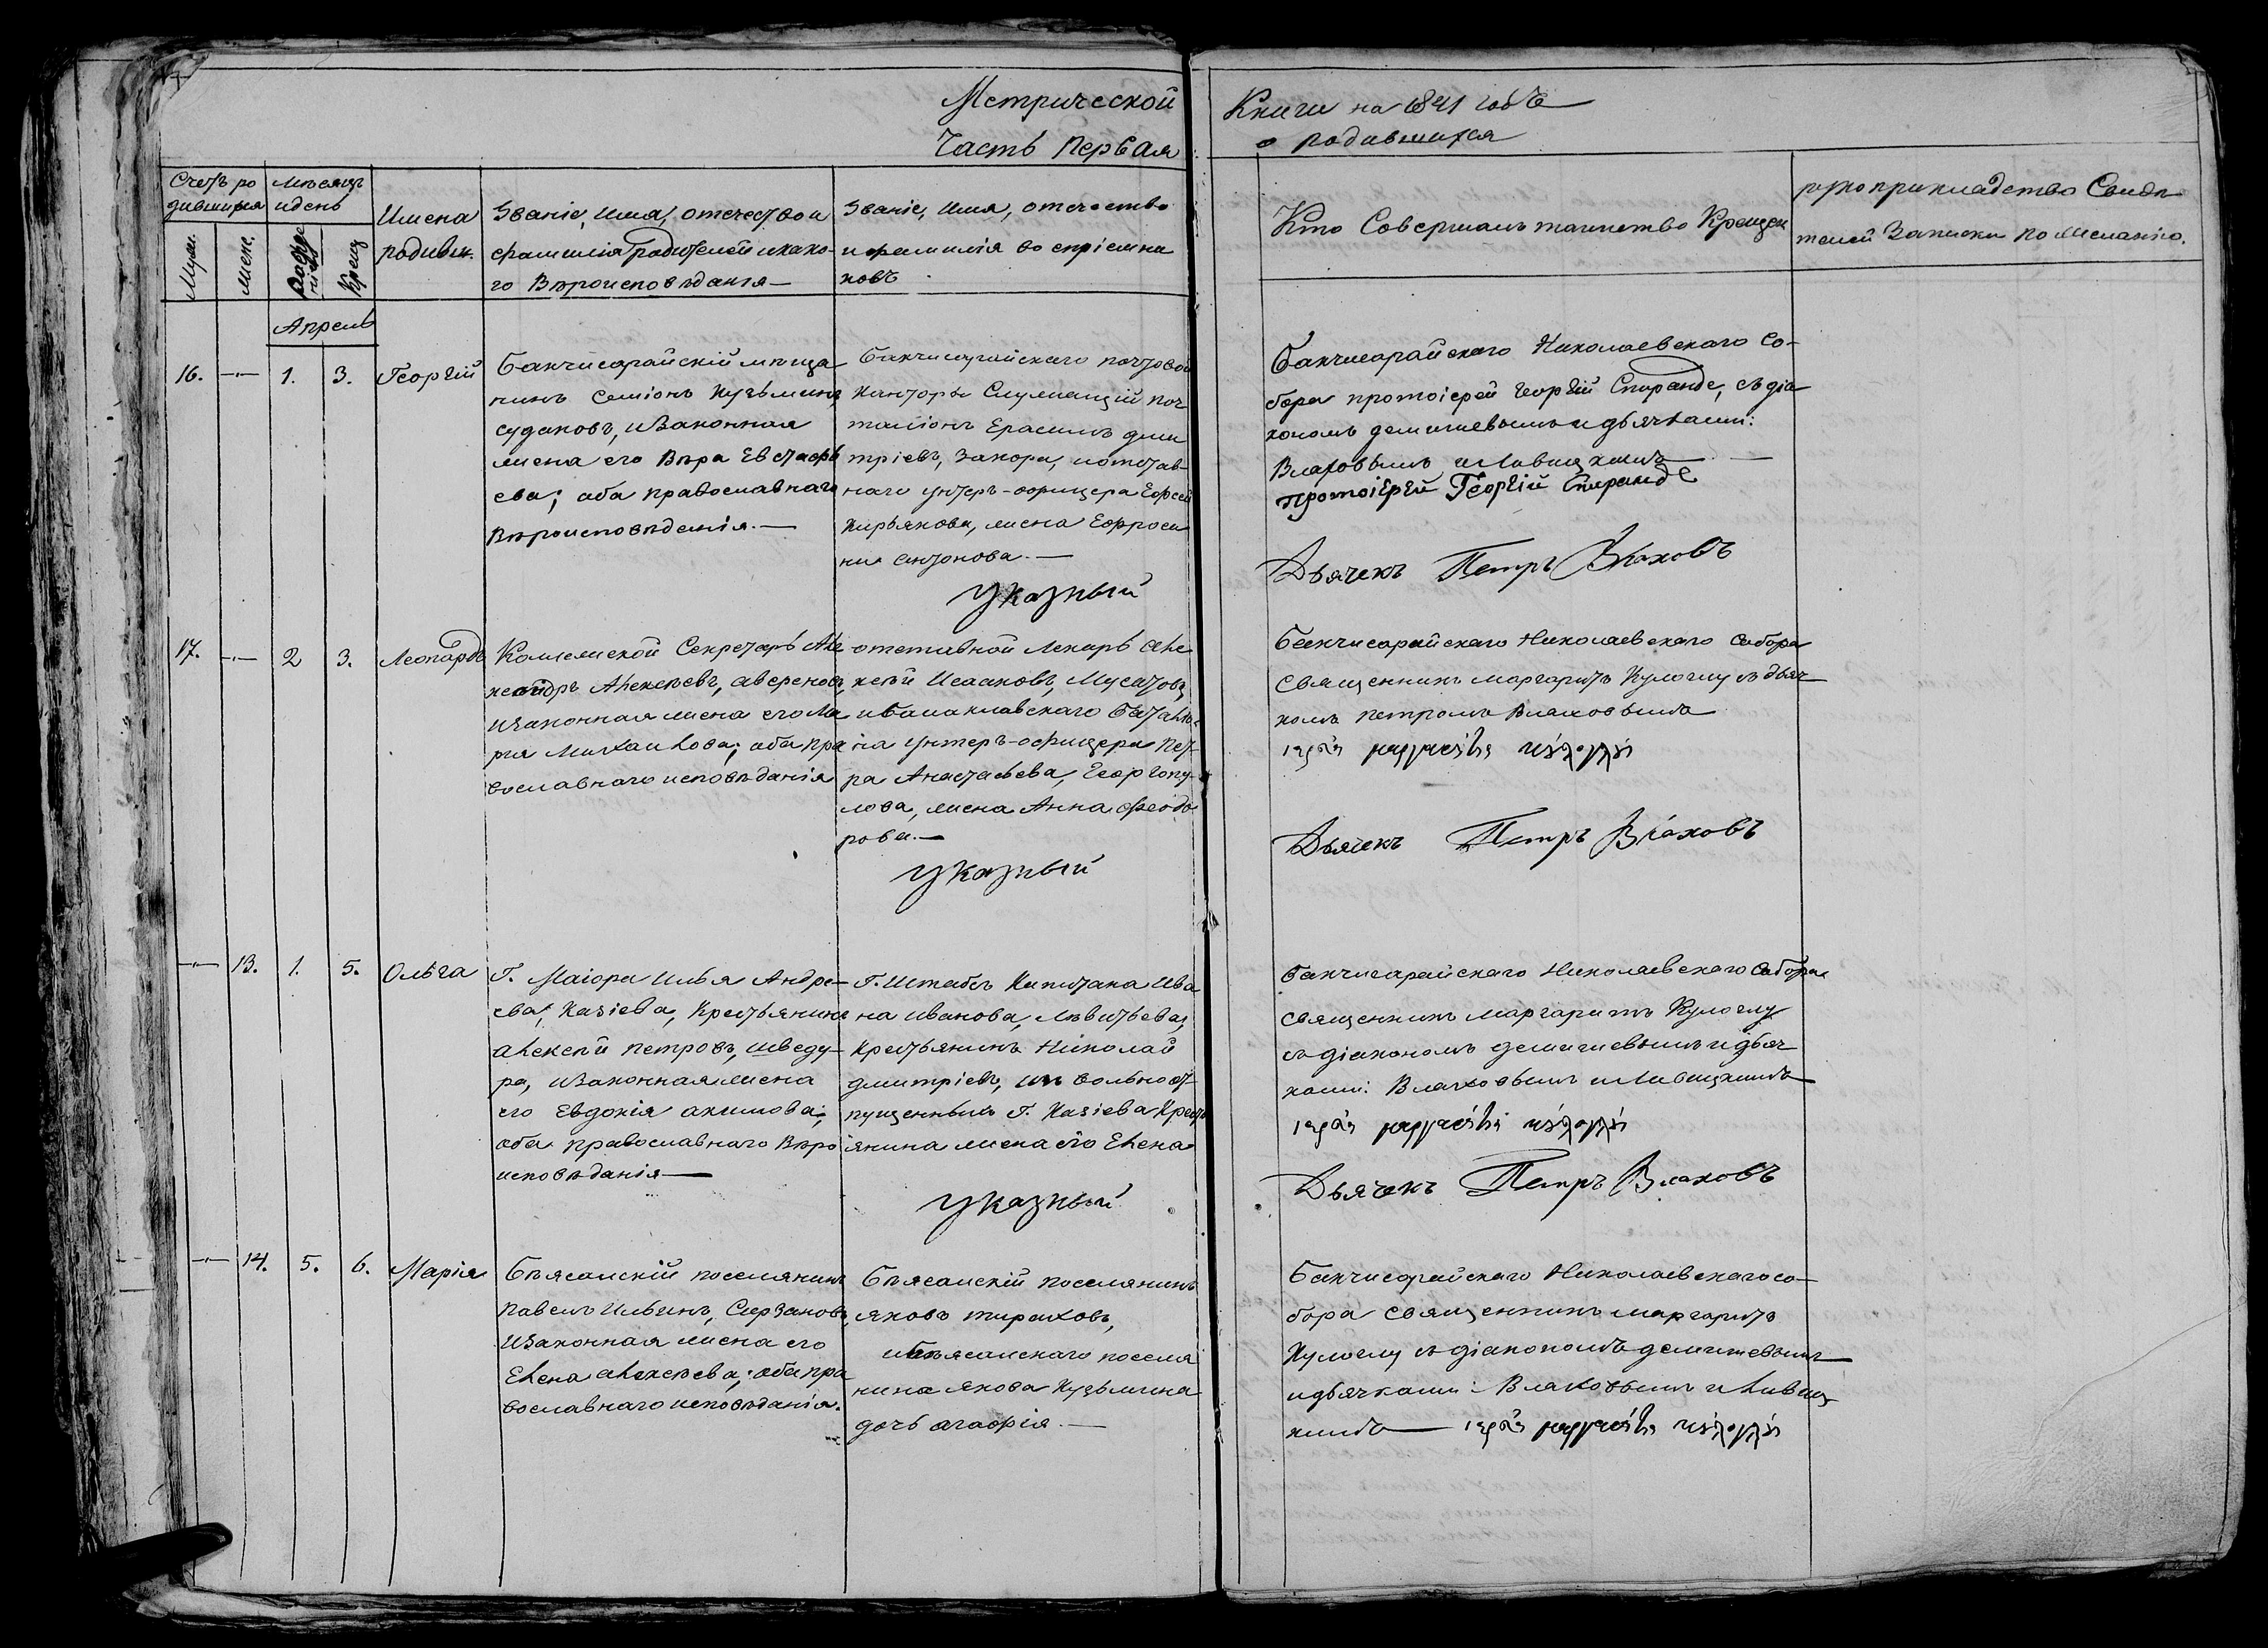 Метрической
Часть Первая
Книги на 1841 годъ
о родившихся
Счетъ ро
дившихся
Муж.
Женс.
Мѣсяцъ
и день
Рожде
нія
Крещ
Имена
родивш.
Званіе, имя, отечество и
фамилія родителей и како-
го Вѣроисповѣданія —
Званіе, имя, отечество
и фамилія воспріемни
ковъ
Кто Совершалъ таинство Крещен
рукоприкладство Свидѣ
телей Записки по желанію.
Апрель
16. —"— 1. 3. Георгій
Бакчисарайскій мѣща
нинъ Семіонъ Кузьминъ
Судаковъ, и Законная
жена его Вѣра Евстафь
ева; оба православнаго
Вѣроисповѣданія. —
Бакчисарайскаго почтовой
Канторы Служащій поч
таліонъ Ерасимъ Дми
тріевъ, Захора, и отстав-
наго унтеръ-офицера Ефсѣй
Кирьякова, жена Ефроси
ния Антонова. —
Указный
Бакчисарайскаго Николаевскаго Со-
бора протоіерей Георгій Спиранде, съ діа
кономъ Демишевымъ и дьячками:
Влаховымъ и Ливицкимъ —
Протоіерей Георгій Спиранде
Дьячекъ Петръ Влаховъ
17. —"— 2 3. Леонардъ
Коллежской Секретарь Але
ксандръ Алексѣевъ, Аверкіевъ,
и Законная жена его Ма
рия Михаилова; оба пра
вославнаго исповѣданія
отставной Лекарь Але
ксѣй Исааковъ, Мусатовъ,
и Балаклавскаго Баталіо
на унтеръ-офицера Пет-
ра Анастасьева, Георгопу-
лова, жена Анна Феодо
рова. —
Указный
Бакчисарайскаго Николаевскаго Собора
Священникъ Маргаритъ Кулоглу съ дьяч
комъ Петромъ Влаховымъ
Дьячекъ Петръ Влаховъ
—"— 13. 1. 5. Ольга
Г. Маіора Илья Андре-
ева, Казіева, Крестьянинъ
Алексѣй Петровъ, Шведу-
ра, и Законная жена
его Евдокія Акимова;
оба православнаго Вѣро
исповѣданія —
Г. Штабсъ Капитана Ива
на Иванова, Левитьева,
Крестьянинъ Николай
Дмитріевъ, и вольноот-
пущенныхъ Г. Казіева Крест
янина жена его Елена
Указный
Бакчисарайскаго Николаевскаго Собора
Священникъ Маргаритъ Кулоглу
съ діакономъ Демишевымъ и дьяч
ками: Влаховымъ и Ливицкимъ —
Дьячекъ Петръ Влаховъ
—"— 14. 5. 6. Марія
Біясалскій поселянинъ
Павелъ Ильинъ, Сирзановъ,
и Законная жена его
Елена Алексѣева; оба пра
вославнаго исповѣданія.
Біясалскій поселянинъ
Яковъ Тираховъ,
и Біясалскаго поселя
нина Якова Кузьмина
дочь Агафія. —
Бакчисарайскаго Николаевскаго со-
бора священникъ Маргаритъ
Кулоглу съ діакономъ Демишевымъ
и дьячками: Влаховымъ и Ливиц
кимъ —